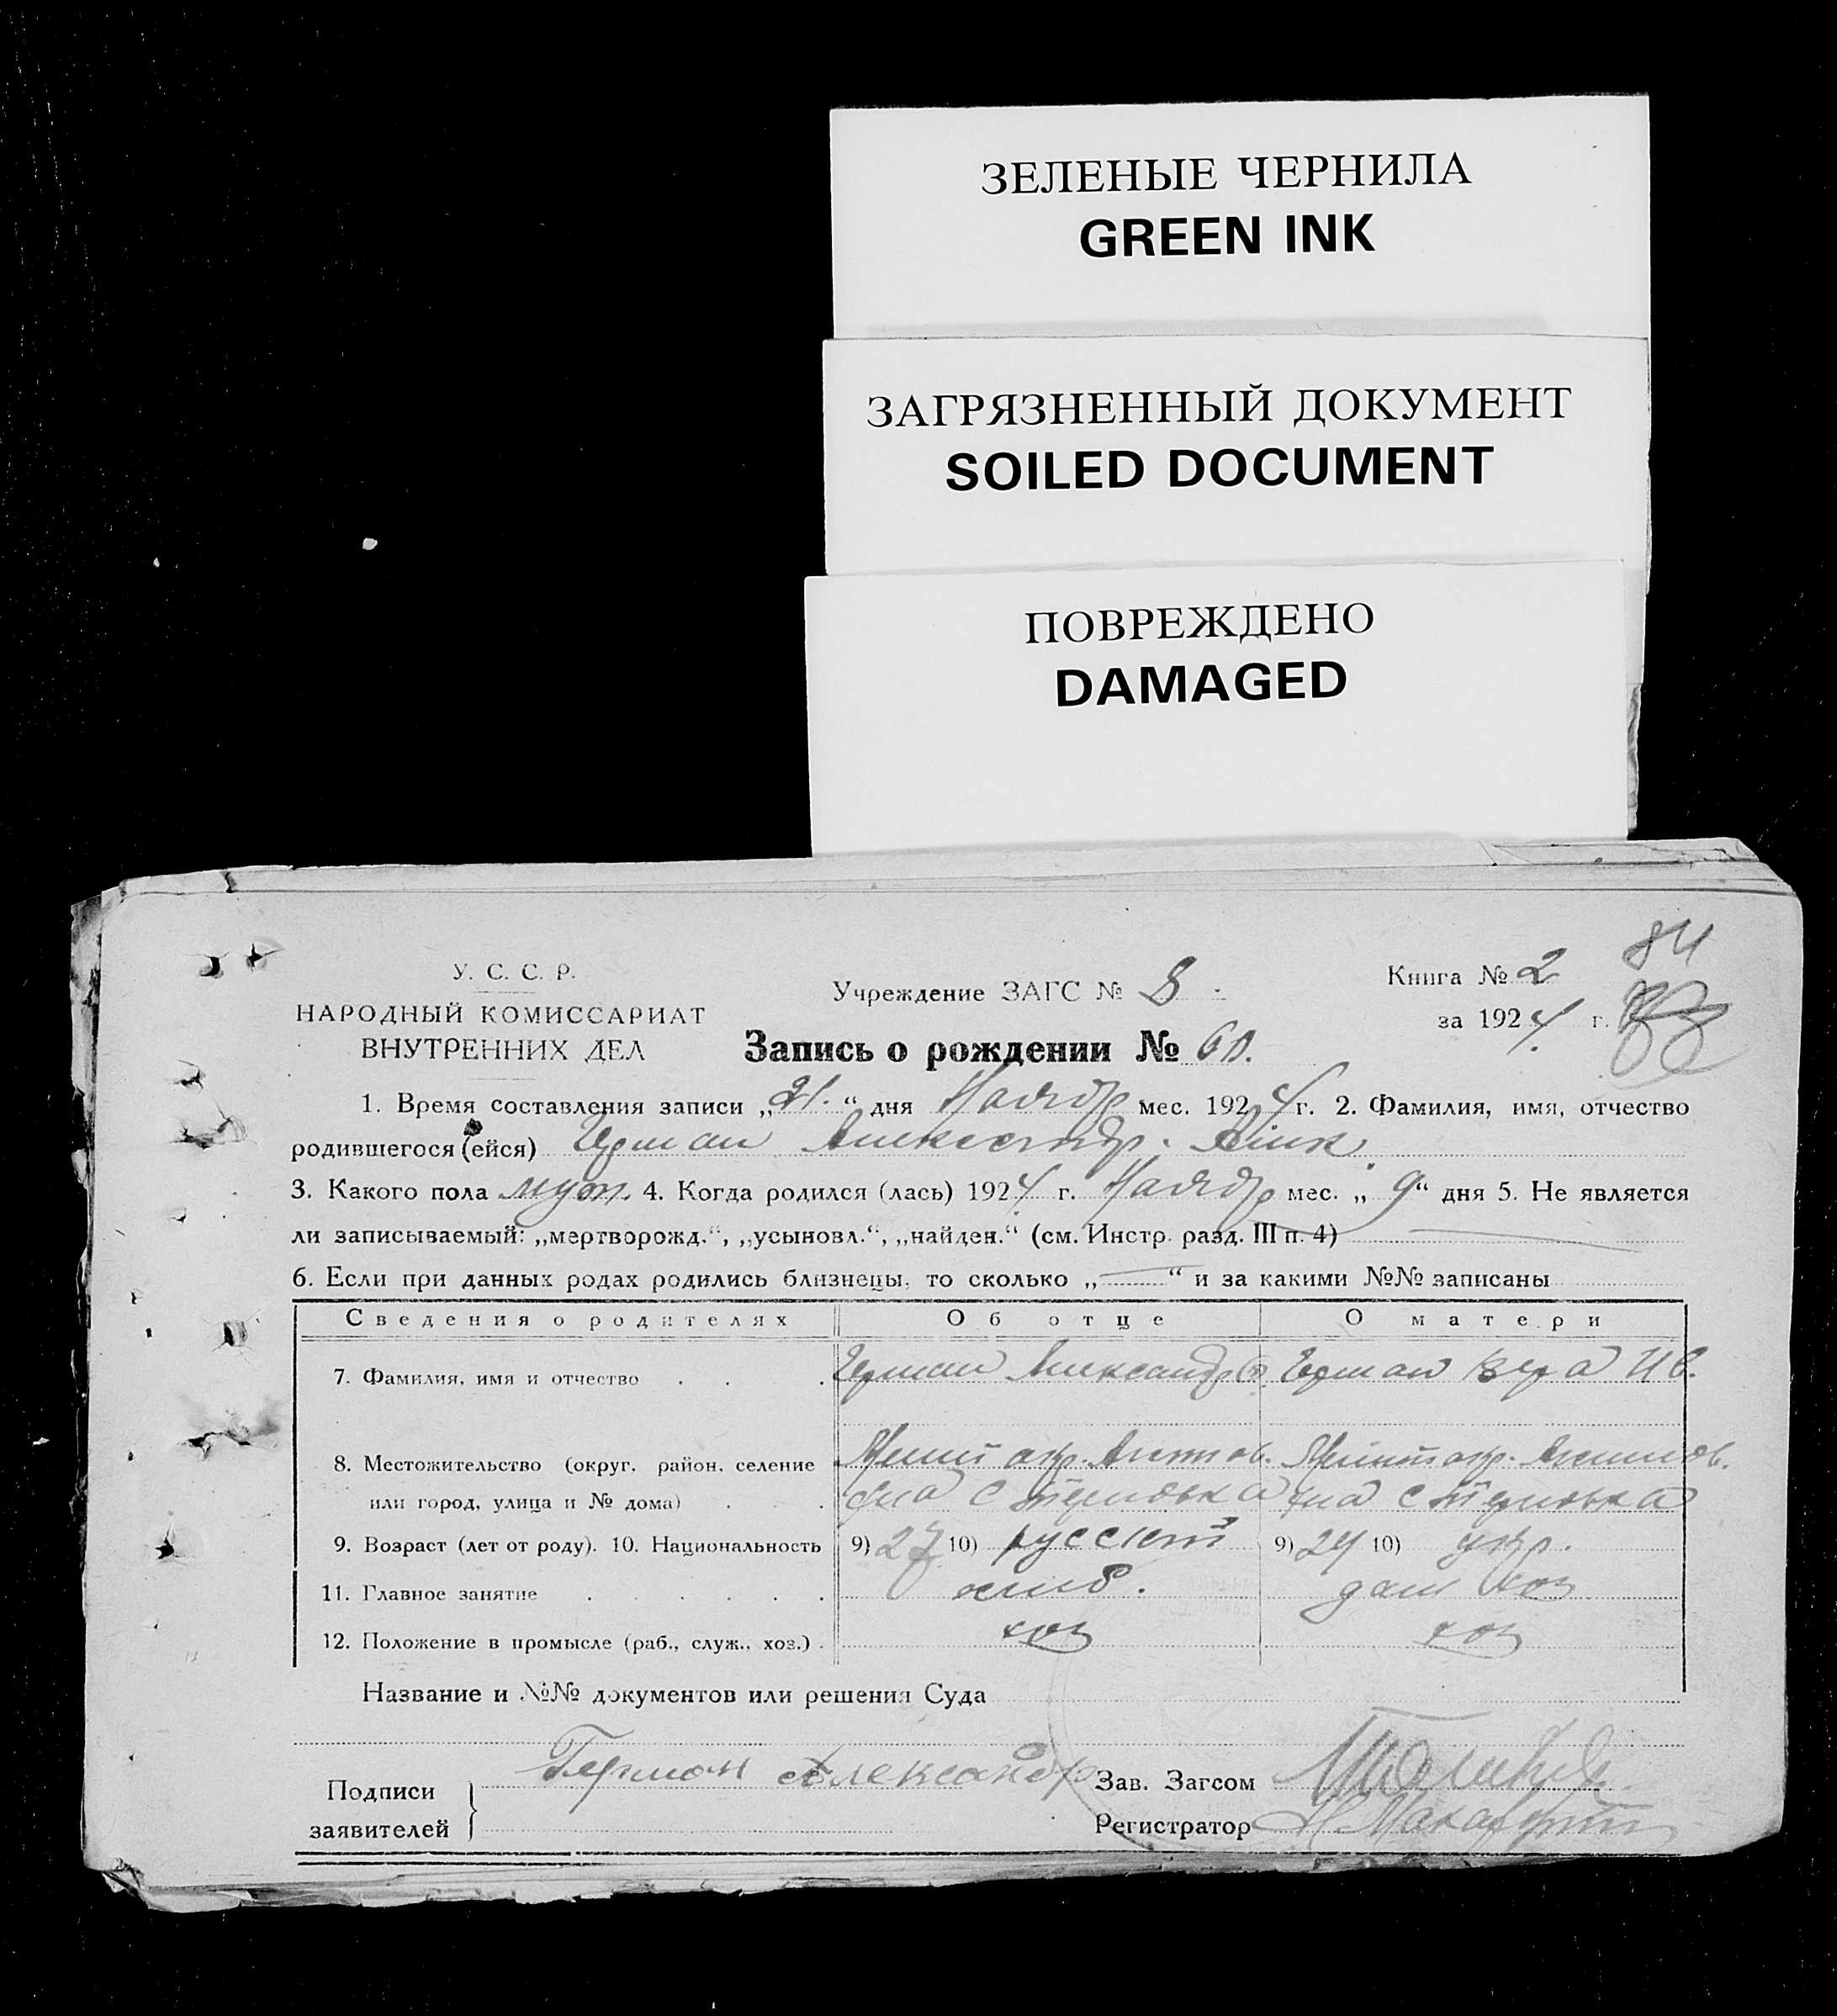 ЗЕЛЕНЫЕ ЧЕРНИЛА
GREEN INK
ЗАГРЯЗНЕННЫЙ ДОКУМЕНТ
SOILED DOCUMENT
ПОВРЕЖДЕНО
DAMAGED
84
У. С. С. Р.
НАРОДНЫЙ КОМИССАРИАТ
ВНУТРЕННИХ ДЕЛ
Учреждение ЗАГС № 8
Книга № 2
за 1924 г.
Запись о рождении № 60.
1. Время составления записи „21.“ дня Ноября мес. 1924 г. 2. Фамилия, имя, отчество
родившегося (ейся) Герман Александр.
3. Какого пола муж. 4. Когда родился (лась) 1924 г. Ноября мес. „9“ дня 5. Не является
ли записываемый: „мертворожд.“, „усыновл.“, „найден.“ (см. Инстр. разд. III п. 4)
6. Если при данных родах родились близнецы, то сколько „—“ и за какими №№ записаны
Сведения о родителях Об отце О матери
7. Фамилия, имя и отчество Герман Александр Герман Вера Ив.
8. Местожительство (округ, район, селение
или город, улица и № дома) с с
9. Возраст (лет от роду). 10. Национальность 9) 27 10) русский 9) 24 10) укр.
11. Главное занятие хлиб. дом хоз
12. Положение в промысле (раб., служ., хоз.) хоз хоз
Название и №№ документов или решения Суда
Подписи
заявителей
Герман Александр
Зав. Загсом
Регистратор